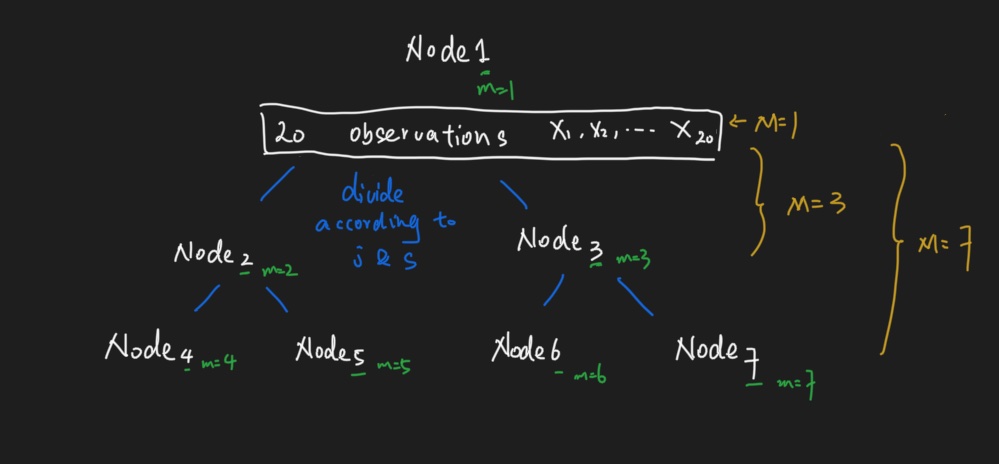 Node 1
m=1
20 observations X1, X2, ... X20 ← M=1
divide
according to
j & s
M=3
M=7
Node 2 m=2
Node 3 m=3
Node 4 m=4
Node 5 m=5
Node 6 m=6
Node 7 m=7